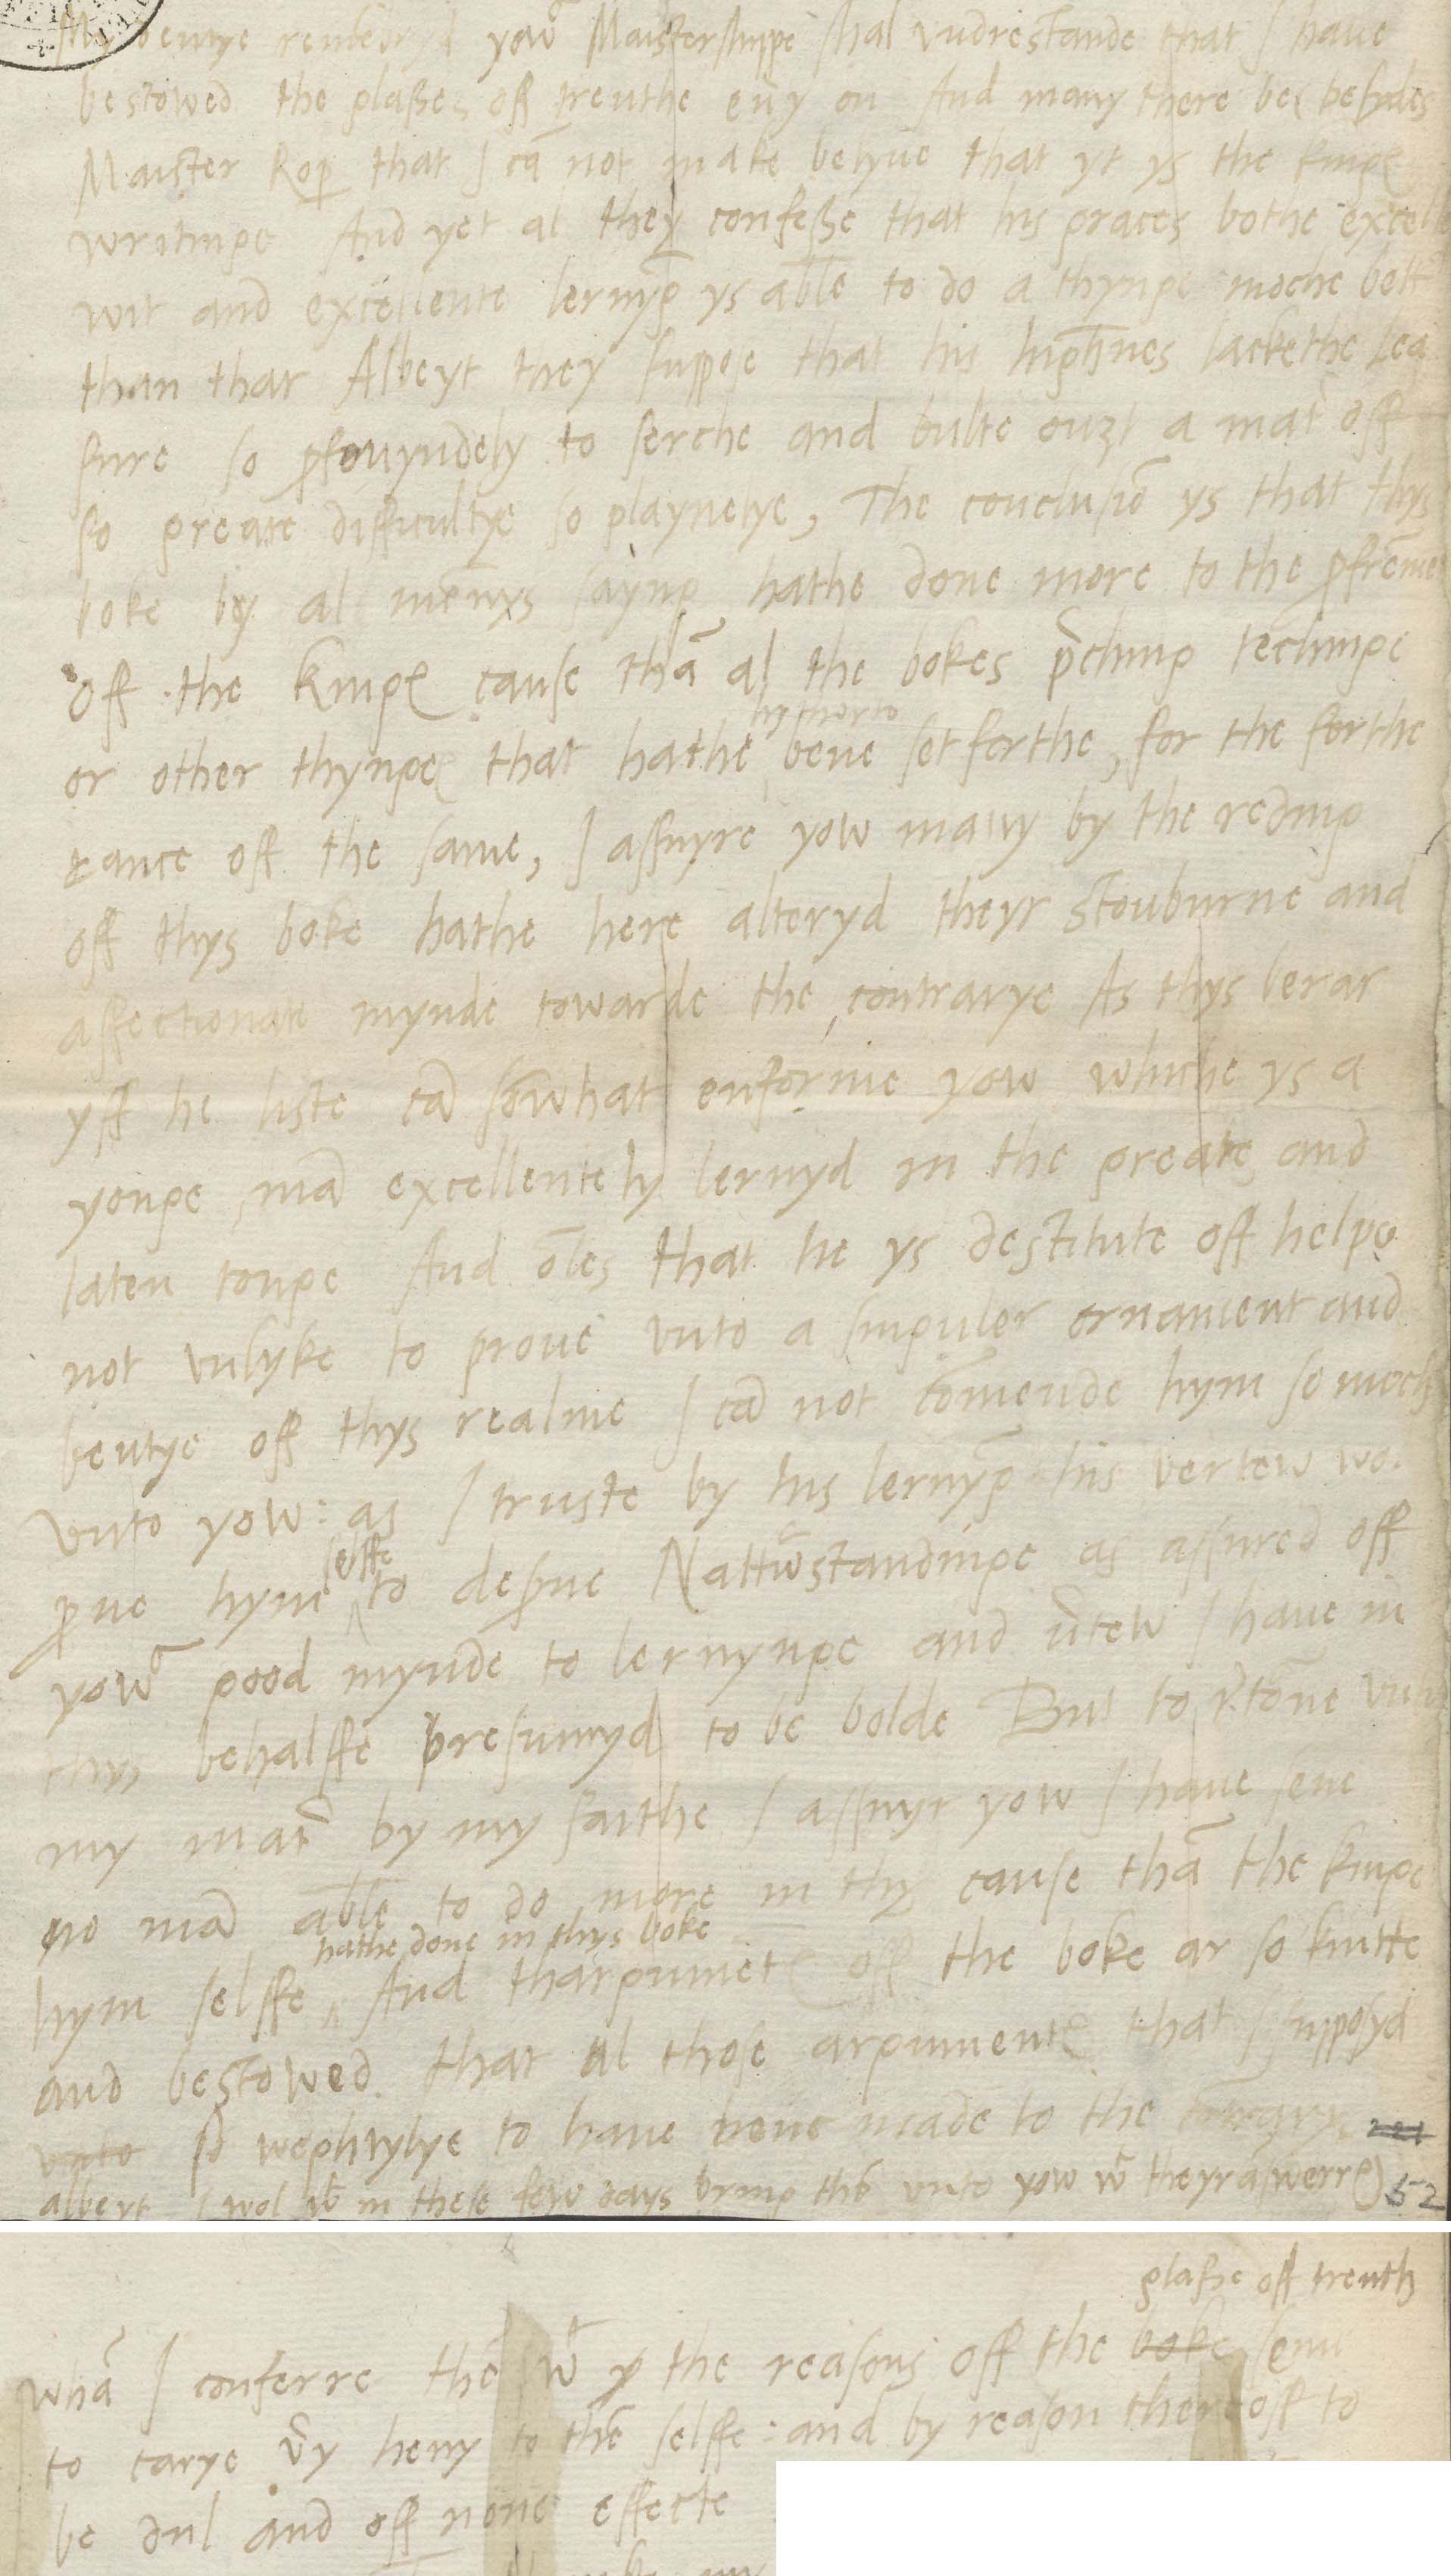 My dewtye remembryd yowr Maistershippe shal vndrestande that I haue
bestowed the glasses off treuthe euy on And many there be besydes
Maister Rop that I cā not make belyue that yt ys the kingꝭ
writinge And yet al they confesse that his graces bothe excell
wit and excellente lernyng ys able to do a thynge moche bett
than that Albeyt they suppose that his highnes lackethe lea
sure so ꝓfowyndely to serche and bulte ouzt a mat off
so greate difficultye so playnelye, The conclusiō ys that thys
boke by al mennys sayng hathe done more to the ꝓfreme
off the kingꝭ cause thā al the bokes pching techinge
or other thyngeꝭ that hathe hytherto bene set forthe, for the forthe
rance off the same, I assuyre yow many by the reding
off thys boke hathe here alteryd theyr stouburne and
affectionate mynde towarde the contrarye As thys berar
yff he liste cā sōwhat enforme yow whiche ys a
yonge mā excellentely lernyd in the greake and
laten tonge And ōles that he ys destitute off helpe
not vnlyke to proue vnto a singuler ornament and
bewtye off thys realme I cā not cōmende hym so moch
vnto yow: as I truste by his lernyng his vertew wol
ꝓue hym selffe to desꝓue Natwstandinge as assured off
yowr good mynde to lernynge and vtew I haue in
thys behalffe presumyd to be bolde But to rtōne vnto
my mat by my faithe I assuyr yow I haue sene
no mā able to do more in thy cause thā the kinge
hym selffe hathe done in thys boke And thargumētꝭ off the boke ar so knitte
and bestowed that al those argumentꝭ that I supposyd
vnto so weghtylye to haue bene made to the cōtrary
albeyt I wol wt in these few days bring thē vnto yow wt theyr āswerrꝭ) 52
glasse off treuth
whā I conferre thē wt y the reasons off the boke seme
to carye vy heny to thē selffe: and by reason thereoff to
be dul and off none effecte